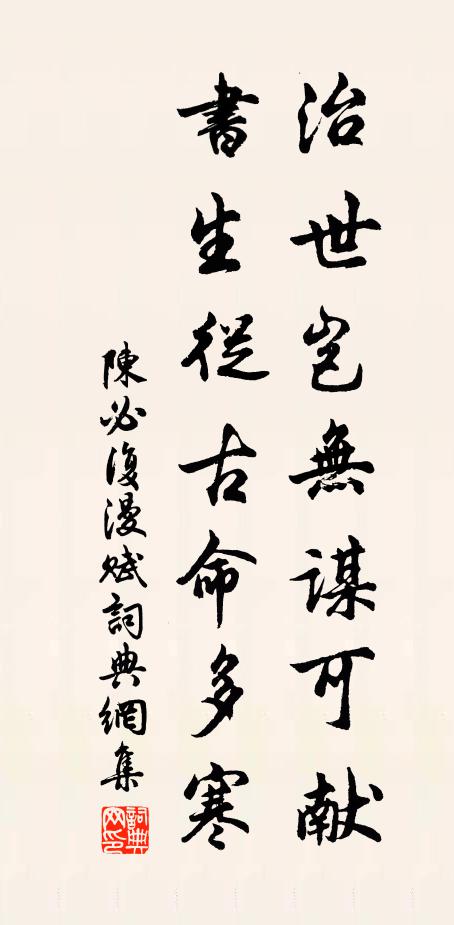 治世岂無謀可献
書生從古命多寒
陳必復漫賦詞典網集
詞典網印